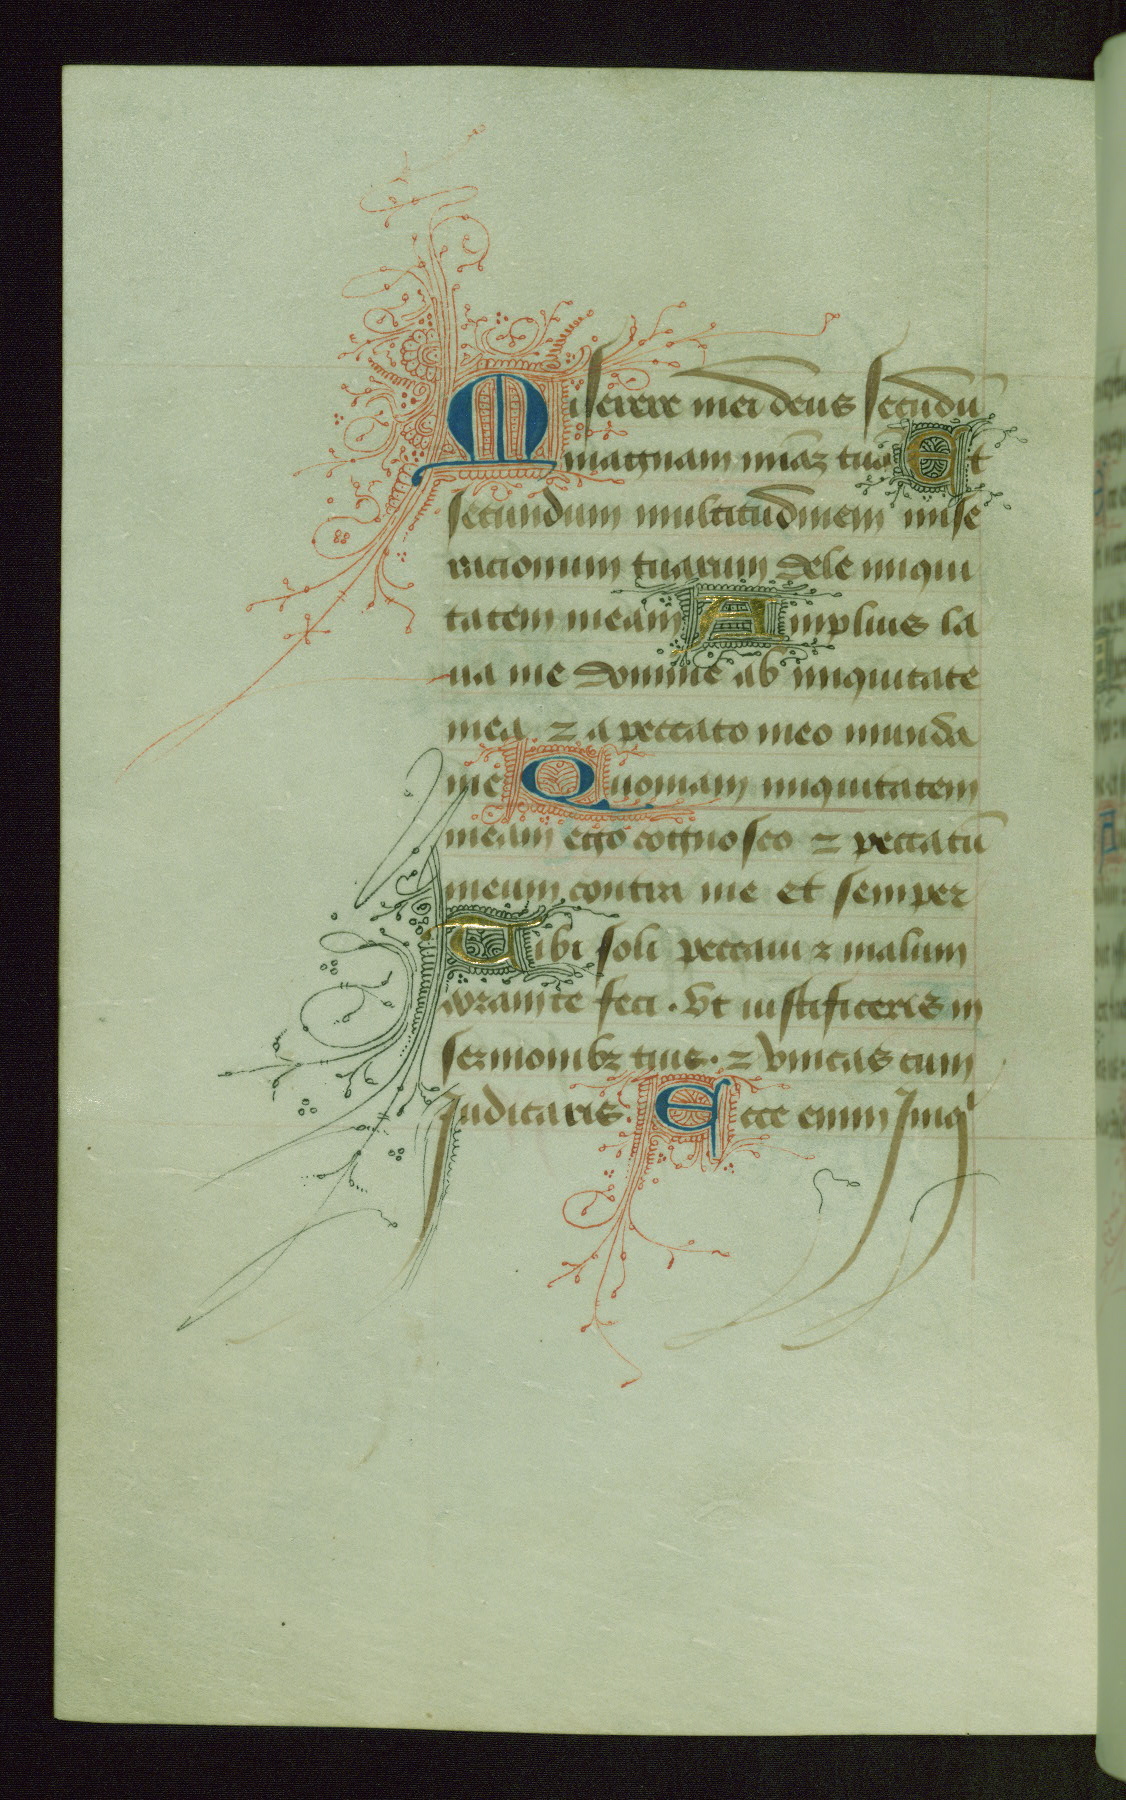 Miserere mei deus secūdū
magnam miāʒ tuā Et
secundum multitudinem mise
racionum tuarum dele iniqui
tatem meam Amplius la
ua me domine ab iniquitate
mea ⁊ a peccato meo munda
me Quoniam iniquitatem
meam ego cognosco ⁊ peccatū
meum contra me et semper
Tibi soli peccaui ⁊ malum
coram te feci . Vt iustificeris in
sermonibʒ tuis . ⁊ vincas cum
Iudicaris . Ecce enim Iniq